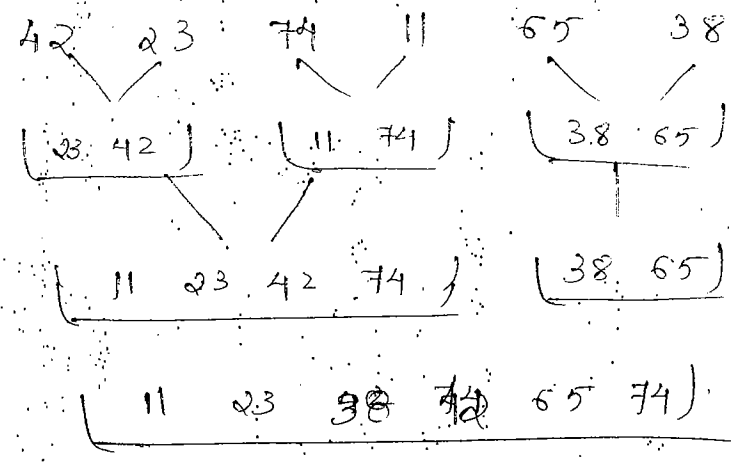 42 23 74 11 65 38
23 42 11 74 38 65
11 23 42 74 38 65
11 23 38 42 65 74